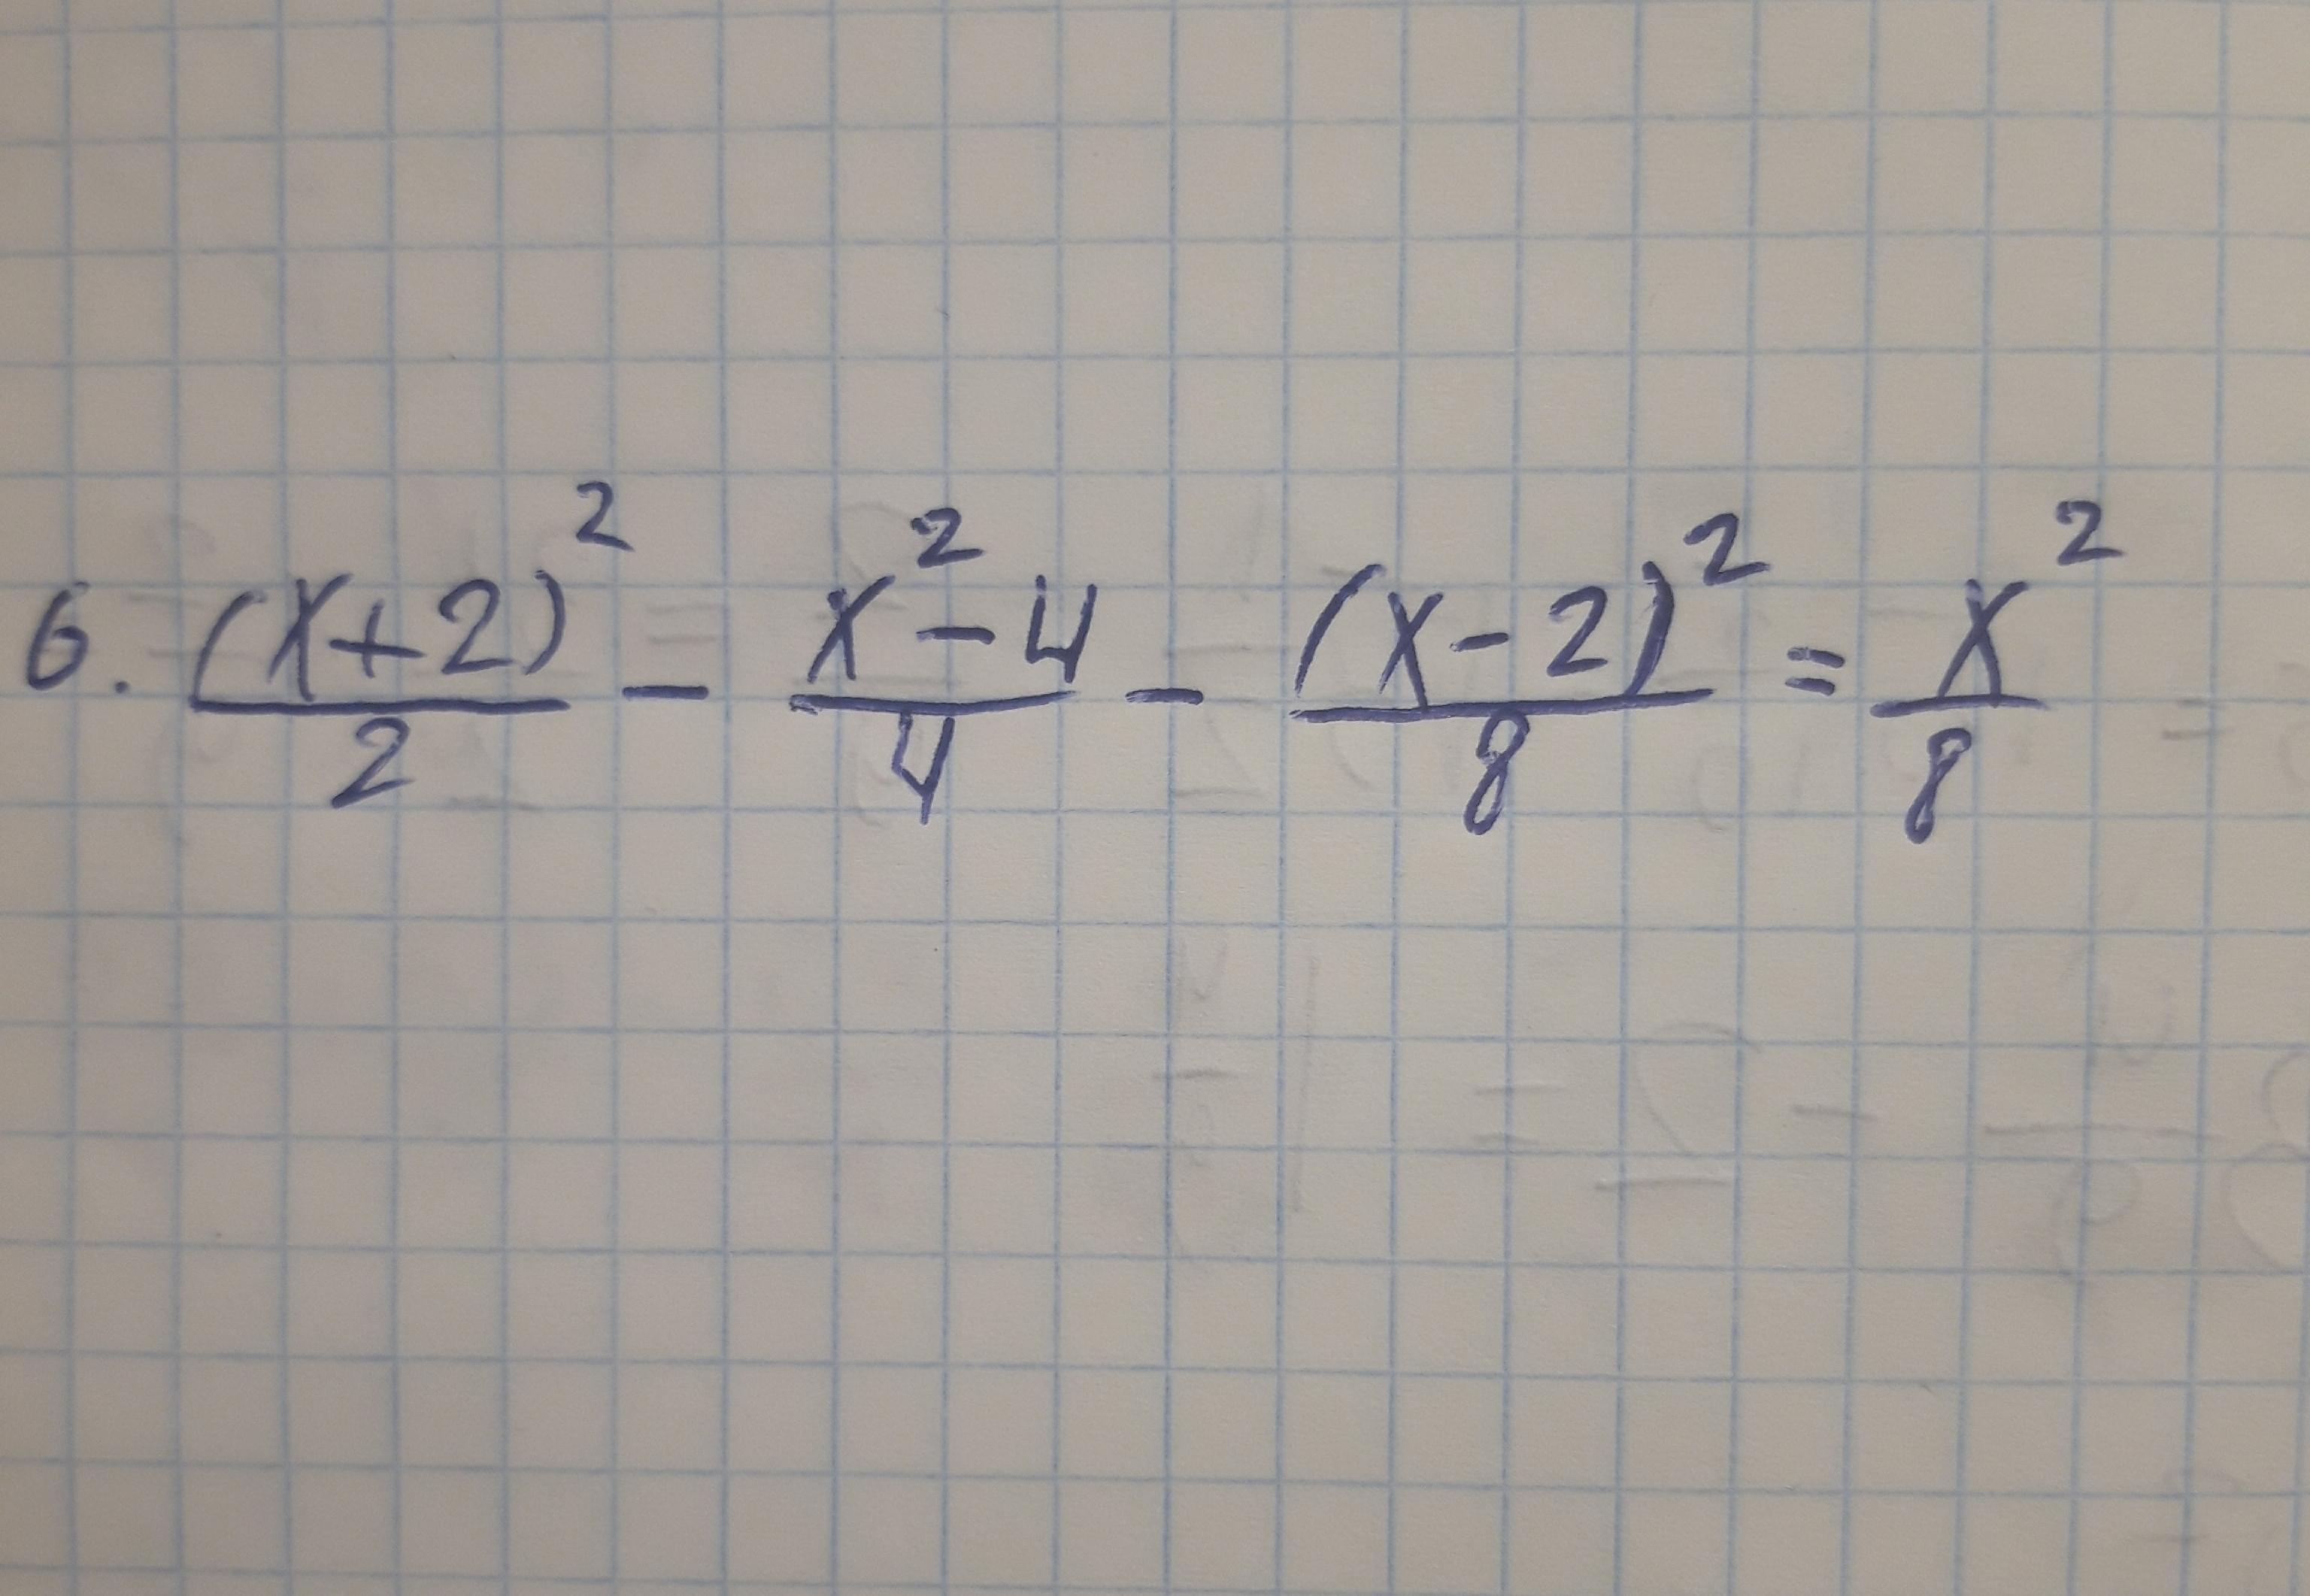 6. (x+2)²/2 - x²-4/4 - (x-2)²/8 = x²/8